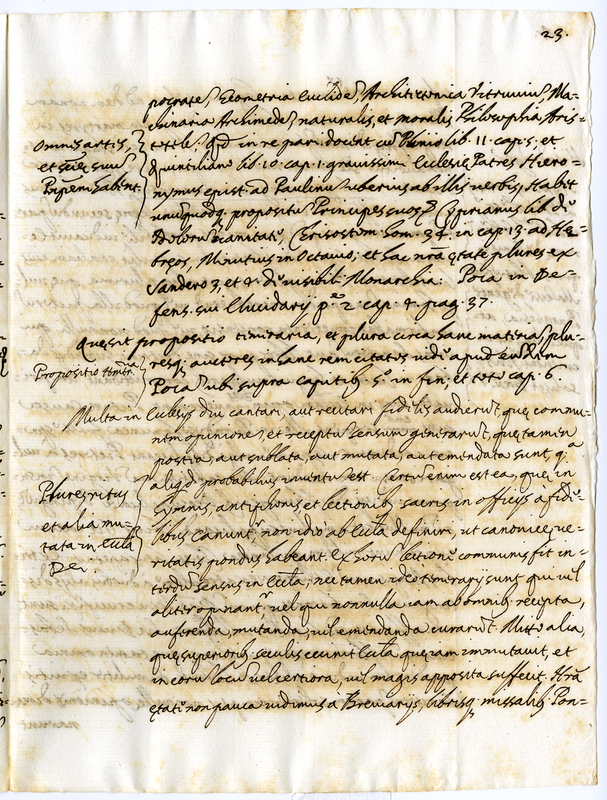 23.
pocrates, Geometria Euclides, Architectonica Vitruvius, Ma-
chinaria Archimedes, naturalis, et moralis Philosophia, Aris-
totiles. qd in re pari docent cu Plinio lib. 11 cap. 5; et
Omnes artis,
et suu
Pnpem habent.
Quintiliano lib. 10. cap. 1. gravissimi Ecclesię Patres Hiero-
nymus epist. ad Paulinu uberius ab illis verbis, Habet
unuquodq. propositu Principes suos; Cyprianus lib. du
Dolor vanitati, Chrisostom. hom. 34. in cap. 13. ad He-
breos, Minutius in Octavio; et hac nrā ętate plures ex
Sandero 3, et 4. du visibili Monarchia. Poca in De-
fens. sui Elucidarij p.e 2. cap. 4. pag. 37.
Quę sit propositio timiraria, et plura circa hanc materia, plu-
Propositio timir.
resq. auctores in hanc rem citatos vide apud
Poca ubi supra capitib. 5.o in fin, et toto cap. 6.
Multa in Ecclesijs diu cantari, aut recitari fidelis audierut, quę commu-
nem opinione, et receptu sensum generarut, quę tamen
postea, aut sublata, aut mutata, aut emendata sunt, qa
aliqd probabilius inventu est. Certu enim est ea, quę in
Plures ritus
et alia mu-
tata in Eccla
Dei.
hymnis, antiphonis et lectionib. sacris in officijs a fide-
libus canunt.r non ideo ab Eccla definiri, ut canonicę ve-
ritatis pondus habeant. Ex horu lectione communis fit in-
terdu sensus in Eccla; nec tamen ideo temerarij sunt qui vel
aliter opinant.r vel qui nonnulla iam ab omnib. recepta,
auferenda, mutanda, vel emendanda curarut. Mitto alia,
quę superiorib. seculis cecinit Eccla quę iam immutavit, et
in eoru locu vel certiora, vel magis apposita suffecit. Nrā
ętate non pauca vidimus a Breviarijs, librisq. missalib. Pon-